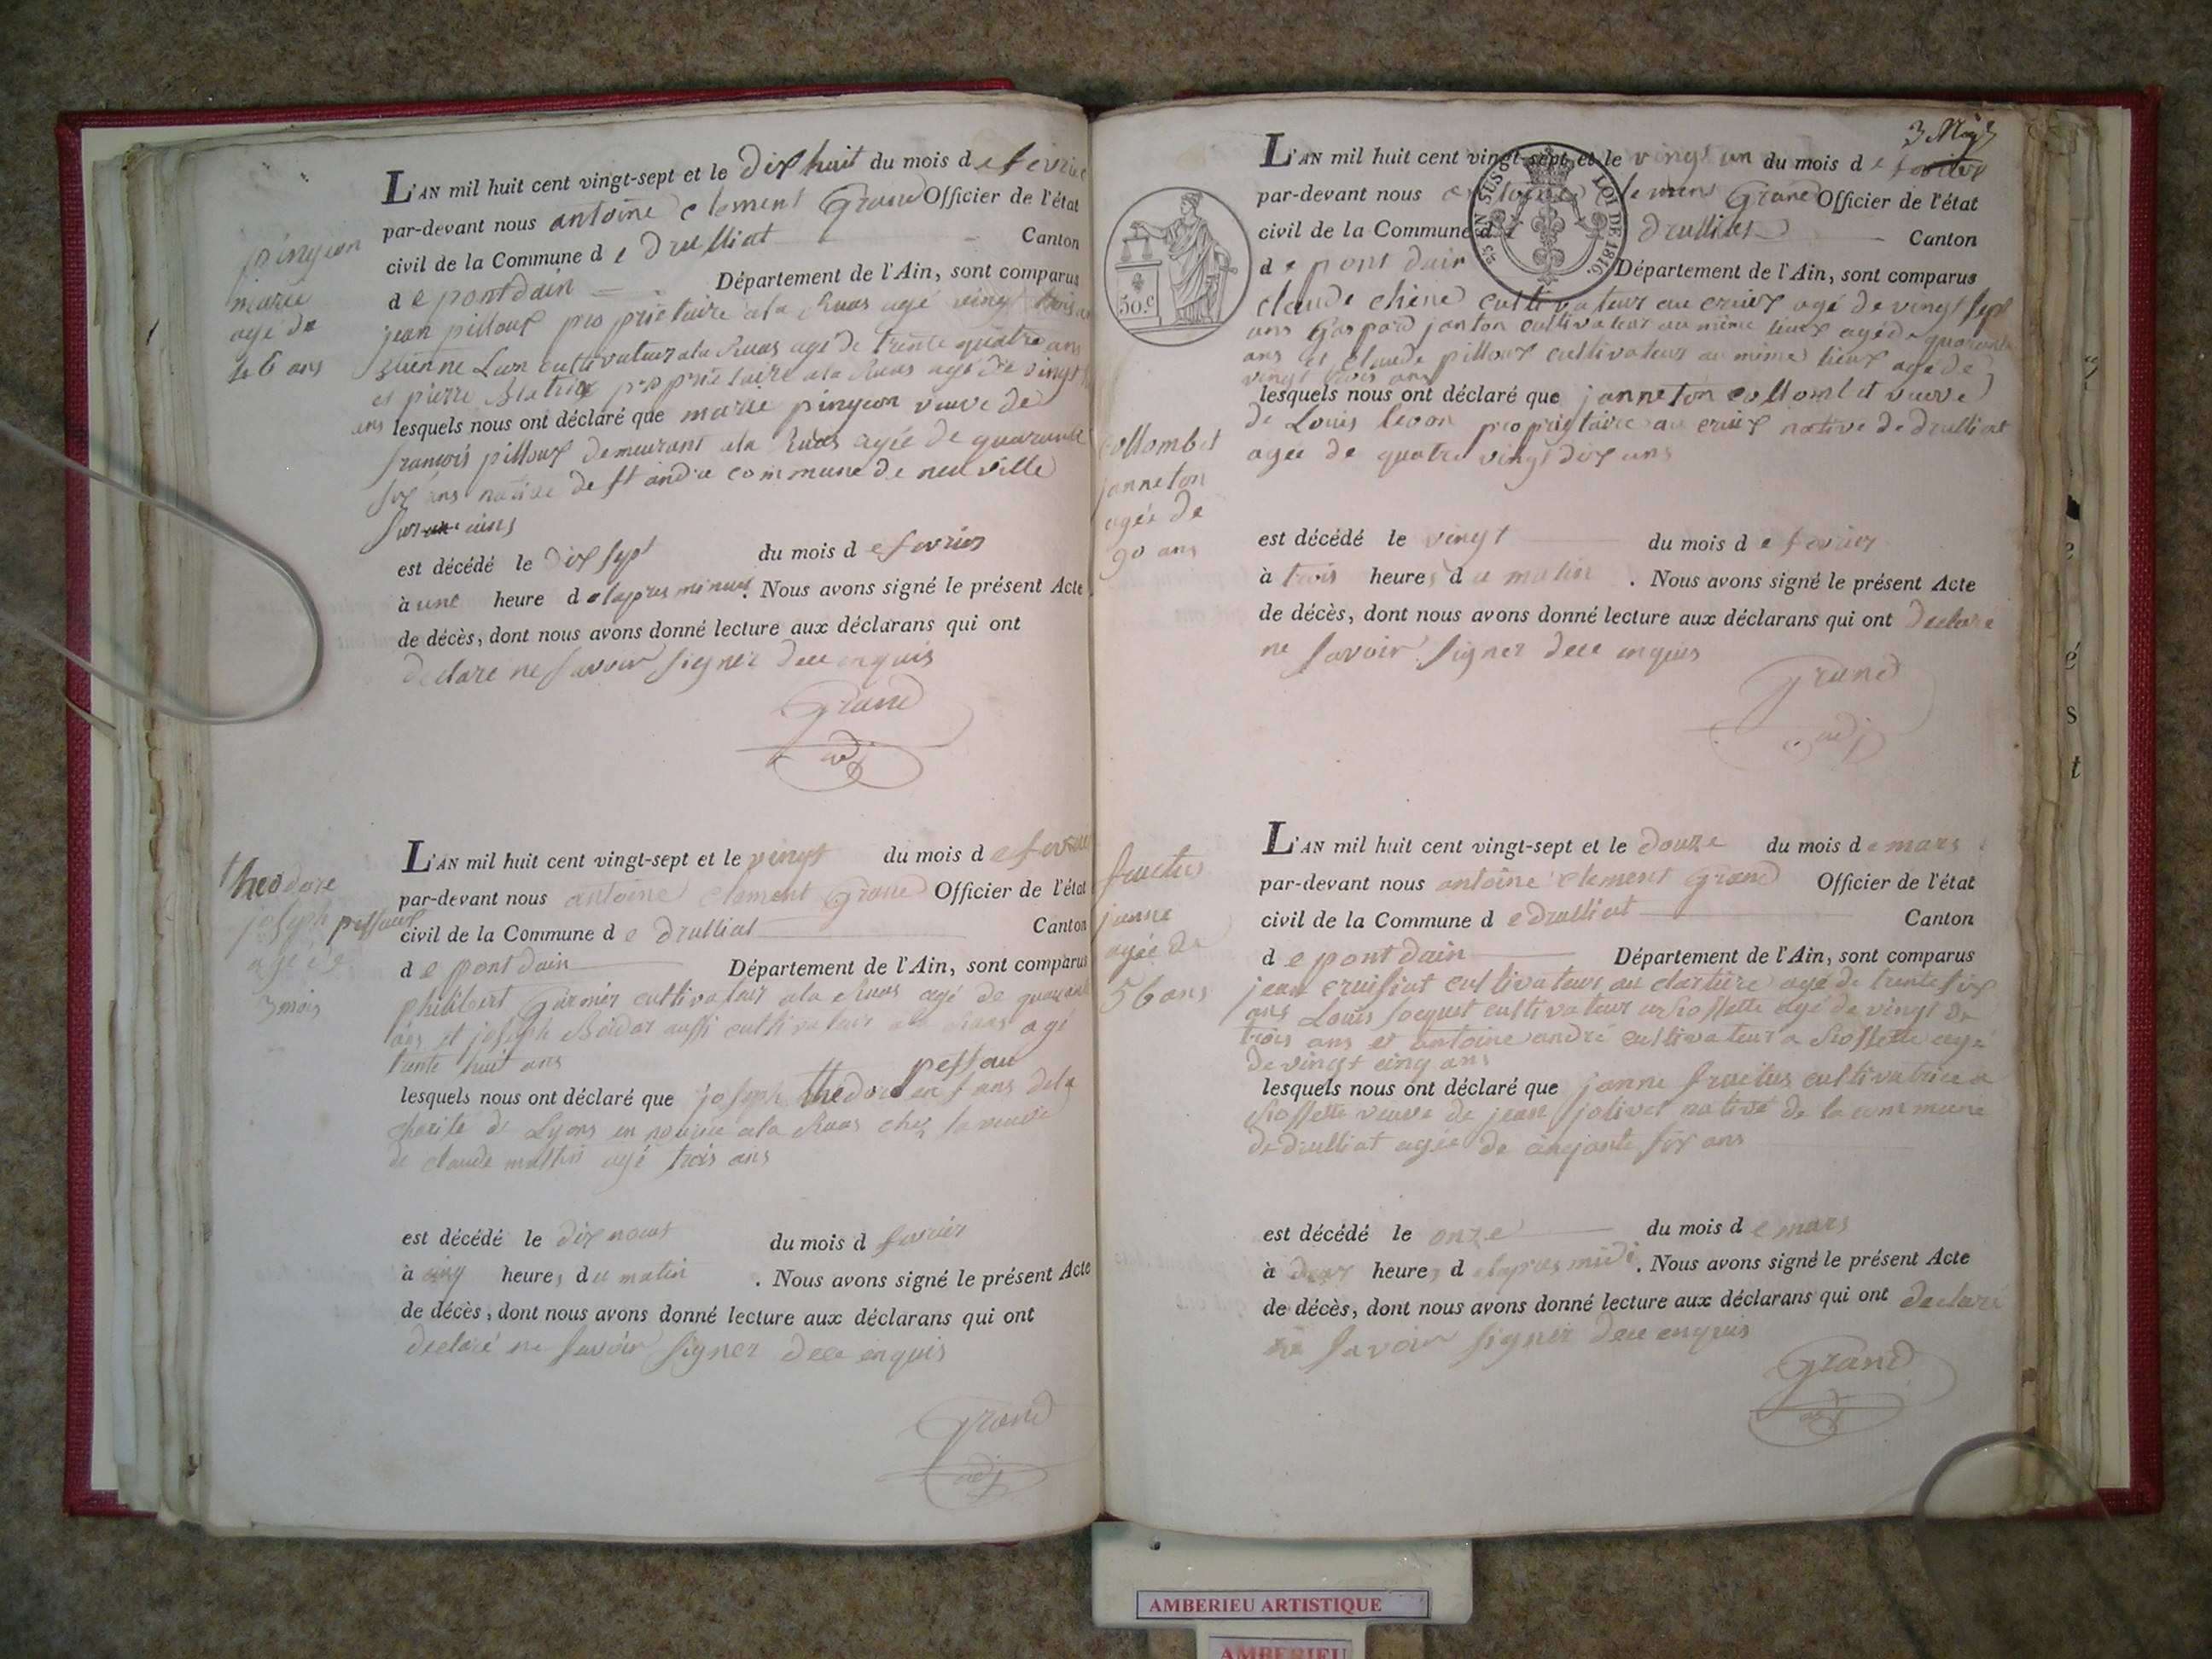 L'AN mil huit cent vingt-sept et le dix huit du mois de fevrier
par-devant nous antoine clement Grand Officier de l'état
civil de la Commune de Drulliat Canton
de pontdain Département de l'Ain, sont comparus
jean pilloux proprietaire ala Ruas agé vingt trois
Léon cultivateur ala Ruas agé de trente quatre ans
et pierre proprietaire ala Ruas agé de vingt
ans lesquels nous ont déclaré que marie pingeon veuve de
francois pilloux demeurant ala Ruas agée de quarante
six ans native de st andre commune de neuville
sur ains
est décédé le dix sept du mois de fevrier
à une heure de lapres minuit. Nous avons signé le présent Acte
de décès, dont nous avons donné lecture aux déclarans qui ont
declaré ne savoir signer dece enquis
Grand
adj
pingeon
marie
agé de
46 ans
L'AN mil huit cent vingt-sept et le vingt du mois de fevrier
par-devant nous antoine clement Grand Officier de l'état
civil de la Commune de Drulliat Canton
de pont dain Département de l'Ain, sont comparus
philibert Garnier cultivateur ala Ruas agé de quarante
ans et joseph aussi cultivateur ala Ruas agé
trente huit ans
pessau
lesquels nous ont déclaré que joseph thedore enfans dela
charite de Lyons en nourice ala Ruas chez la veuve
de claude agé trois ans
est décédé le dix neuf du mois d fevrier
à cinq heures du matin. Nous avons signé le présent Acte
de décès, dont nous avons donné lecture aux déclarans qui ont
declaré ne savoir signer dece enquis
Grand
adj
theodore
joseph pessaux
agé de
3 mois
3
L'AN mil huit cent vingt-sept et le vingt un du mois de
par-devant nous clement Grand Officier de l'état
civil de la Commune d drulliat Canton
de pont dain Département de l'Ain, sont comparus
claude chéne cultivateur au crius agé de vingt sept
ans Gaspard janton cultivateur au même lieux agé de quarante
ans et claude pilloux cultivateur au même lieux agé de
vingt trois ans
lesquels nous ont déclaré que janneton collombet veuve
de Louis levon proprietaire au crius native de drulliat
agée de quatre vingt dix ans
est décédé le vingt du mois de fevrier
à trois heures du matin. Nous avons signé le présent Acte
de décès, dont nous avons donné lecture aux déclarans qui ont declare
ne savoir signer dece enquis
Grand
adj
EN SUS LOI DE 1816.
50.c
collombet
janneton
agée de
90 ans
L'AN mil huit cent vingt-sept et le douze du mois de mars
par-devant nous antoine clement Grand Officier de l'état
civil de la Commune de drulliat Canton
de pont dain Département de l'Ain, sont comparus
jean cruisiat cultivateur au clartiere agé de trente six
ans Louis socquet cultivateur a Riossette agé de vingt de
trois ans et antoine andré cultivateur a Riossette agé
de vingt cinq ans
lesquels nous ont déclaré que janne fructus cultivatrice a
Riossette veuve de jean jolivet native de la commune
de drulliat agée de cinqante six ans
est décédé le onze du mois de mars
à deux heures de lapres midi. Nous avons signé le présent Acte
de décès, dont nous avons donné lecture aux déclarans qui ont declaré
ne savoir signer dece enquis
Grand
adj
fructus
janne
agée de
56 ans
e
é
s
t
AMBERIEU ARTISTIQUE
AMBERIEU